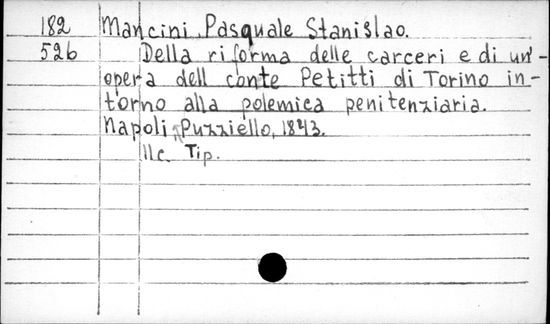 182 Mancini, Pasquale Stanislao.
526 Della riforma delle carceri e di un'-
opera dell conte Petitti di Torino in-
torno alla polemica penitenziaria.
Napoli, Puzziello, 1843.
llc. Tip.